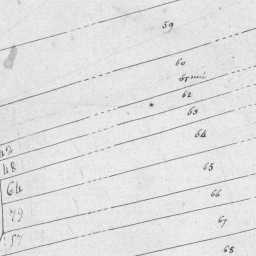 59
60
62
63
42
64
48
65
64
66
79
67
57
68